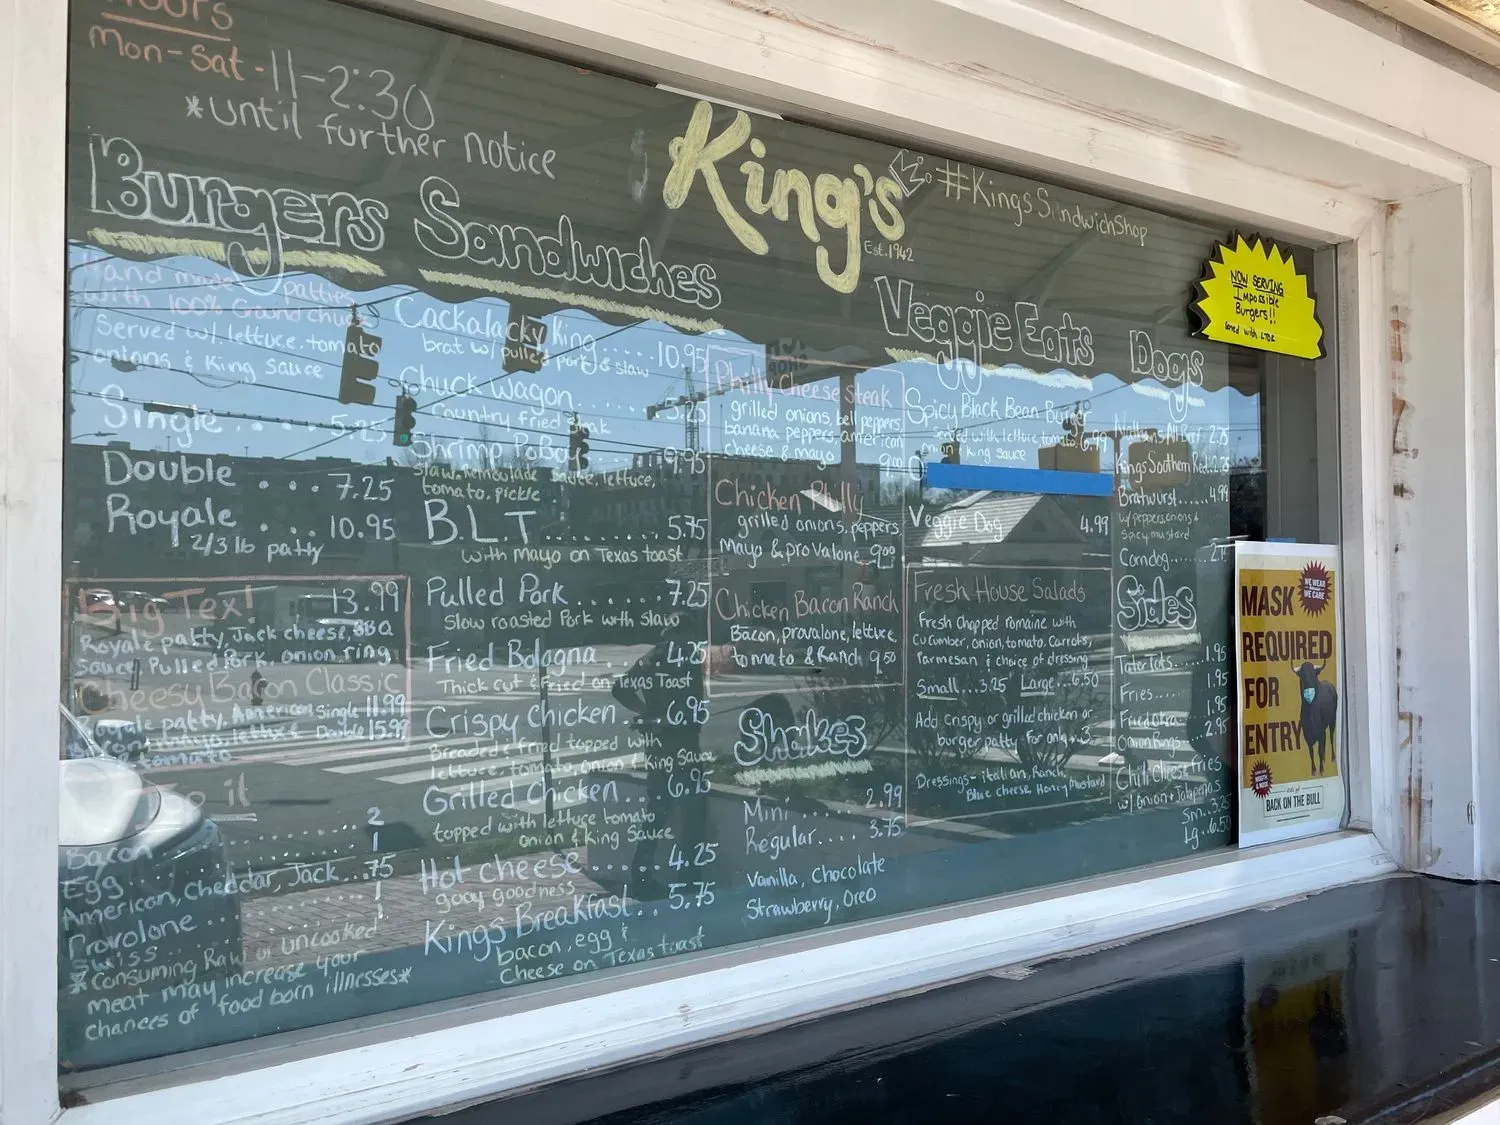 Hours
Mon-Sat-11-2:30
*until further notice
King's
Est. 1942
#KingsSandwichShop
Burgers
Hand made patties
with 100% Ground chuck
Served w/ lettuce, tomato
onions & King Sauce
Single . . . 5.25
Double . . . 7.25
Royale . . . 10.95
2/3 lb patty
Big Tex! 13.99
Royale patty, Jack cheese, BBQ
Sauce, Pulled Pork, onion ring
Cheesy Bacon Classic
patty, American Single 11.99
Double 15.99
tomato
it
2
Bacon 1
Egg
American, Cheddar, Jack ...75
Provolone 1
Swiss 1
*Consuming Raw or uncooked
meat may increase your
chances of food born illnesses*
Sandwiches
Cackalacky King.....10.95
brat w/ pulled pork & slaw
Chuck Wagon........5.25
country fried steak
Shrimp Po Boy 9.95
slaw, remoulade sauce, lettuce,
tomato, pickle
B.L.T........5.75
with Mayo on Texas toast
Pulled Pork.......7.25
slow roasted Pork with slaw
Fried Bologna....4.25
Thick cut & fried on Texas Toast
Crispy Chicken...6.95
Breaded & fried topped with
lettuce, tomato, onion & King Sauce
Grilled Chicken...6.95
topped with lettuce tomato
onion & King Sauce
Hot cheese......4.25
gooy goodness
Kings Breakfast..5.75
bacon, egg &
Cheese on Texas toast
Philly Cheese Steak
grilled onions, bell peppers,
banana peppers, american
cheese & mayo 9.00
Chicken Philly
grilled onions, peppers
Mayo & provalone 9.00
Chicken Bacon Ranch
Bacon, provalone, lettuce
tomato & Ranch 9.50
Shakes
Mini......2.99
Regular....3.75
Vanilla, Chocolate
Strawberry, Oreo
Veggie Eats
Spicy Black Bean Burger
served with lettuce tomato 6.99
onion & king sauce
Veggie Dog 4.99
Fresh House Salads
Fresh chopped romaine with
cucumber, onion, tomato, carrots,
Parmesan & choice of dressing
Small...3.25 Large...6.50
Add crispy or grilled chicken or
burger patty for only +3
Dressings- italian, Ranch,
Blue cheese, Honey mustard
Dogs
Nathans All Beef. 2.75
Kings Southern Red.2.25
Bratwurst.....4.99
w/ peppers, onions &
spicy mustard
Corndog...
Sides
Tater Tots.....1.95
Fries.....1.95
Fried Okra...1.95
Onion Rings...2.95
Chili Cheese Fries
w/ Onion + Jalapenos
Sm. 3.25
Lg. 6.50
NOW SERVING
Impossible
Burgers!!
WE WEAR
BECAUSE
WE CARE
MASK
REQUIRED
FOR
ENTRY
BACK ON THE BULL